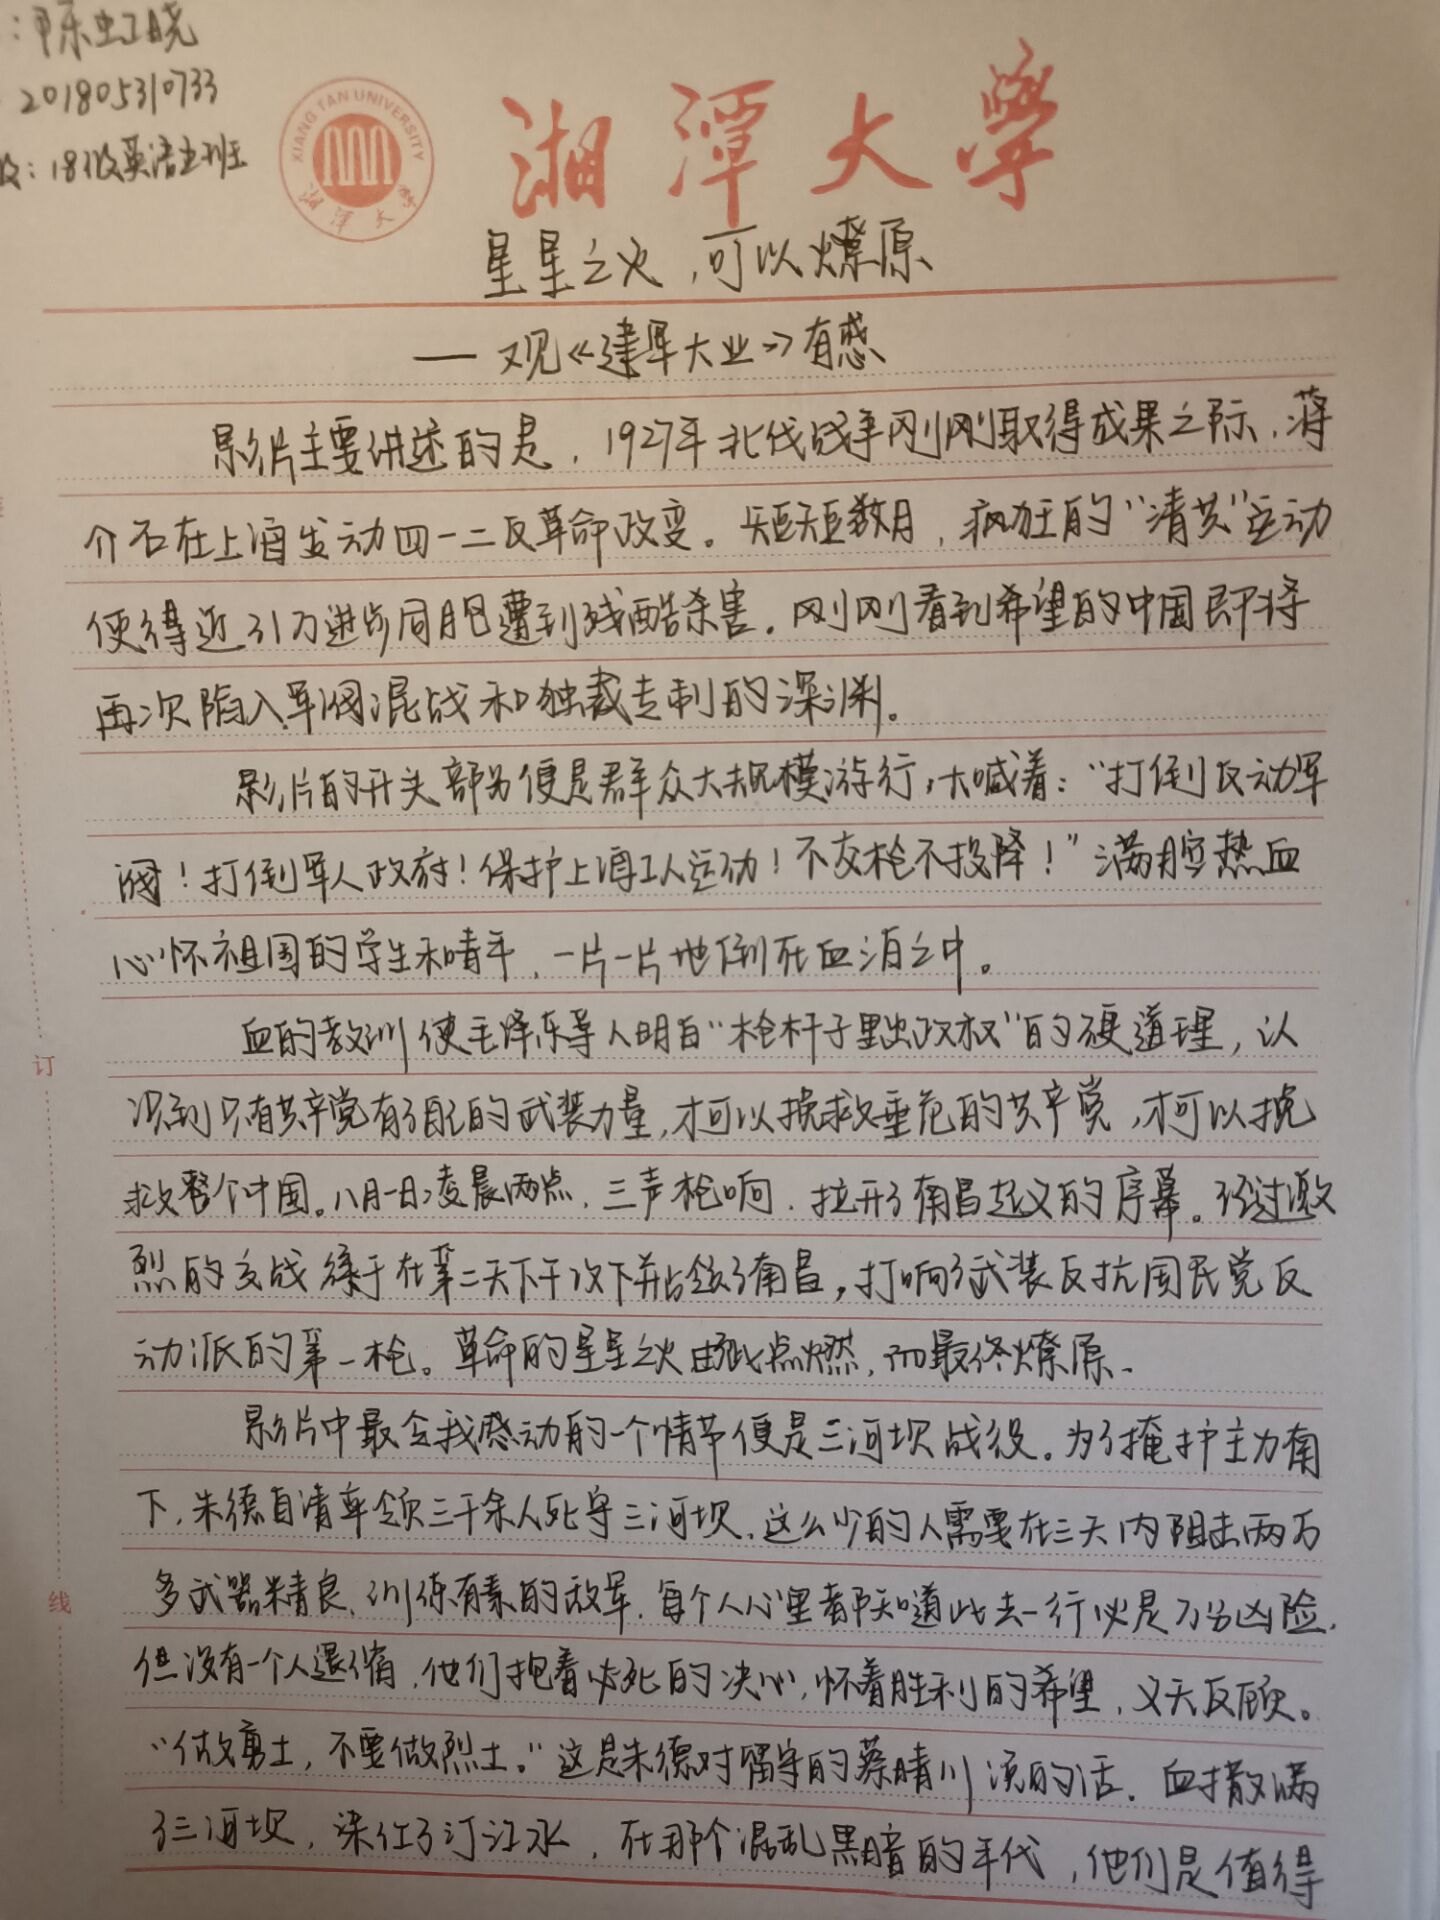 ：陈虹晓
201805310733
级：18级英语五班
XIANG TAN UNIVERSITY
湘潭大学
湘潭大学
星星之火，可以燎原
——观《建军大业》有感
影片主要讲述的是，1927年北伐战争刚刚取得成果之际，蒋
介石在上海发动四一二反革命政变。短短数月，疯狂的“清共”运动
使得近31万进步同胞遭到残酷杀害。刚刚看到希望的中国即将
再次陷入军阀混战和独裁专制的深渊。
影片的开头部分便是群众大规模游行，大喊着：“打倒反动军
阀！打倒军人政府！保护上海工人运动！不交枪不投降！”满腔热血
心怀祖国的学生和青年，一片一片地倒在血泊之中。
血的教训使毛泽东等人明白“枪杆子里出政权”的硬道理，认
识到只有共产党有了自己的武装力量，才可以挽救垂危的共产党，才可以挽
救整个中国。八月一日凌晨两点，三声枪响，拉开了南昌起义的序幕。经过激
烈的交战终于在第二天下午攻下并占领了南昌，打响了武装反抗国民党反
动派的第一枪。革命的星星之火由此点燃，而最终燎原。
影片中最令我感动的一个情节便是三河坝战役。为了掩护主力南
下，朱德自请率领三千余人死守三河坝，这么少的人需要在三天内阻击两万
多武器精良、训练有素的敌军，每个人心里都知道此去一行必是万分凶险，
但没有一个人退缩，他们抱着必死的决心，怀着胜利的希望，义无反顾。
“做勇士，不要做烈士。”这是朱德对留守的蔡晴川说的话。血撒满
了三河坝，染红了汀江水，在那个混乱黑暗的年代，他们是值得
订
线